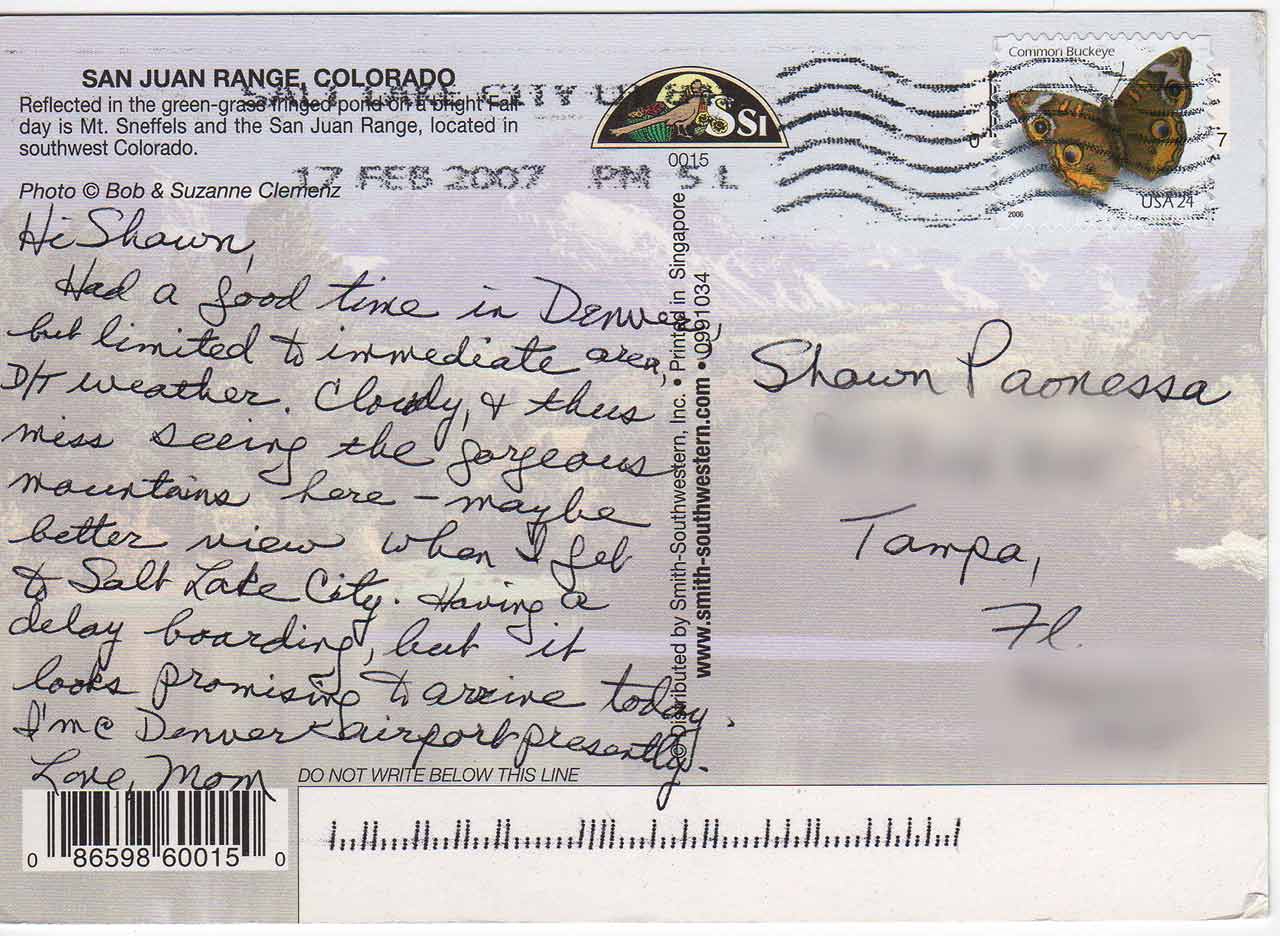 SAN JUAN RANGE, COLORADO
Reflected in the green-grass fringed pond on a bright Fall
day is Mt. Sneffels and the San Juan Range, located in
southwest Colorado.
Photo © Bob & Suzanne Clemenz
SALT LAKE CITY UT
17 FEB 2007 PM 5 L
SSI
0015
Common Buckeye
USA 24
2006
0
7
Hi Shawn,
Had a good time in Denver,
but limited to immediate area,
D/T weather. Cloudy, & thus
miss seeing the gorgeous
mountains here - maybe
better view when I get
to Salt Lake City. Having a
delay boarding, but it
looks promising to arrive today.
I'm @ Denver airport presently.
Love, Mom
© Distributed by Smith-Southwestern, Inc. • Printed in Singapore
www.smith-southwestern.com • 0991034
Shawn Paonessa
Tampa,
Fl.
DO NOT WRITE BELOW THIS LINE
0 86598 60015 0